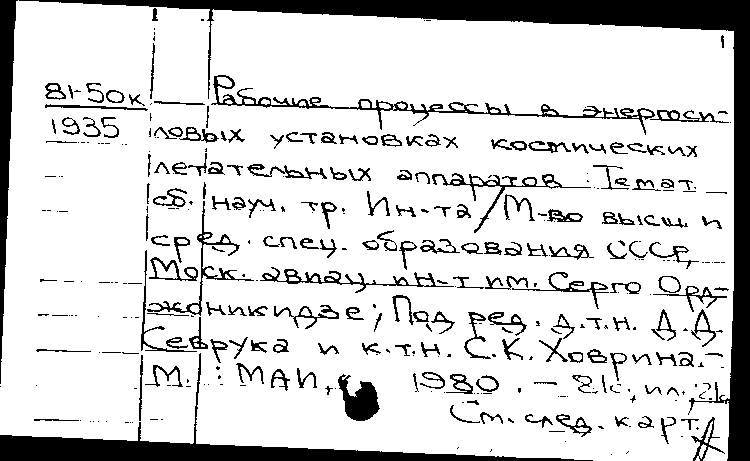 81-50к Рабочие процессы в энергоси-
1935 ловых установках космических
летательных аппаратов: Темат.
сб. науч. тр. Ин-та/М-во высш. и
сред. спец. образования СССР,
Моск. авиац. ин-т им. Серго Орд-
жоникидзе; Под ред. д.т.н. Д.Д.
Севрука и к.т.н. С.К. Ховрина.-
М.: МАИ, 1980. - 81с., ил.;
См. след. карт.